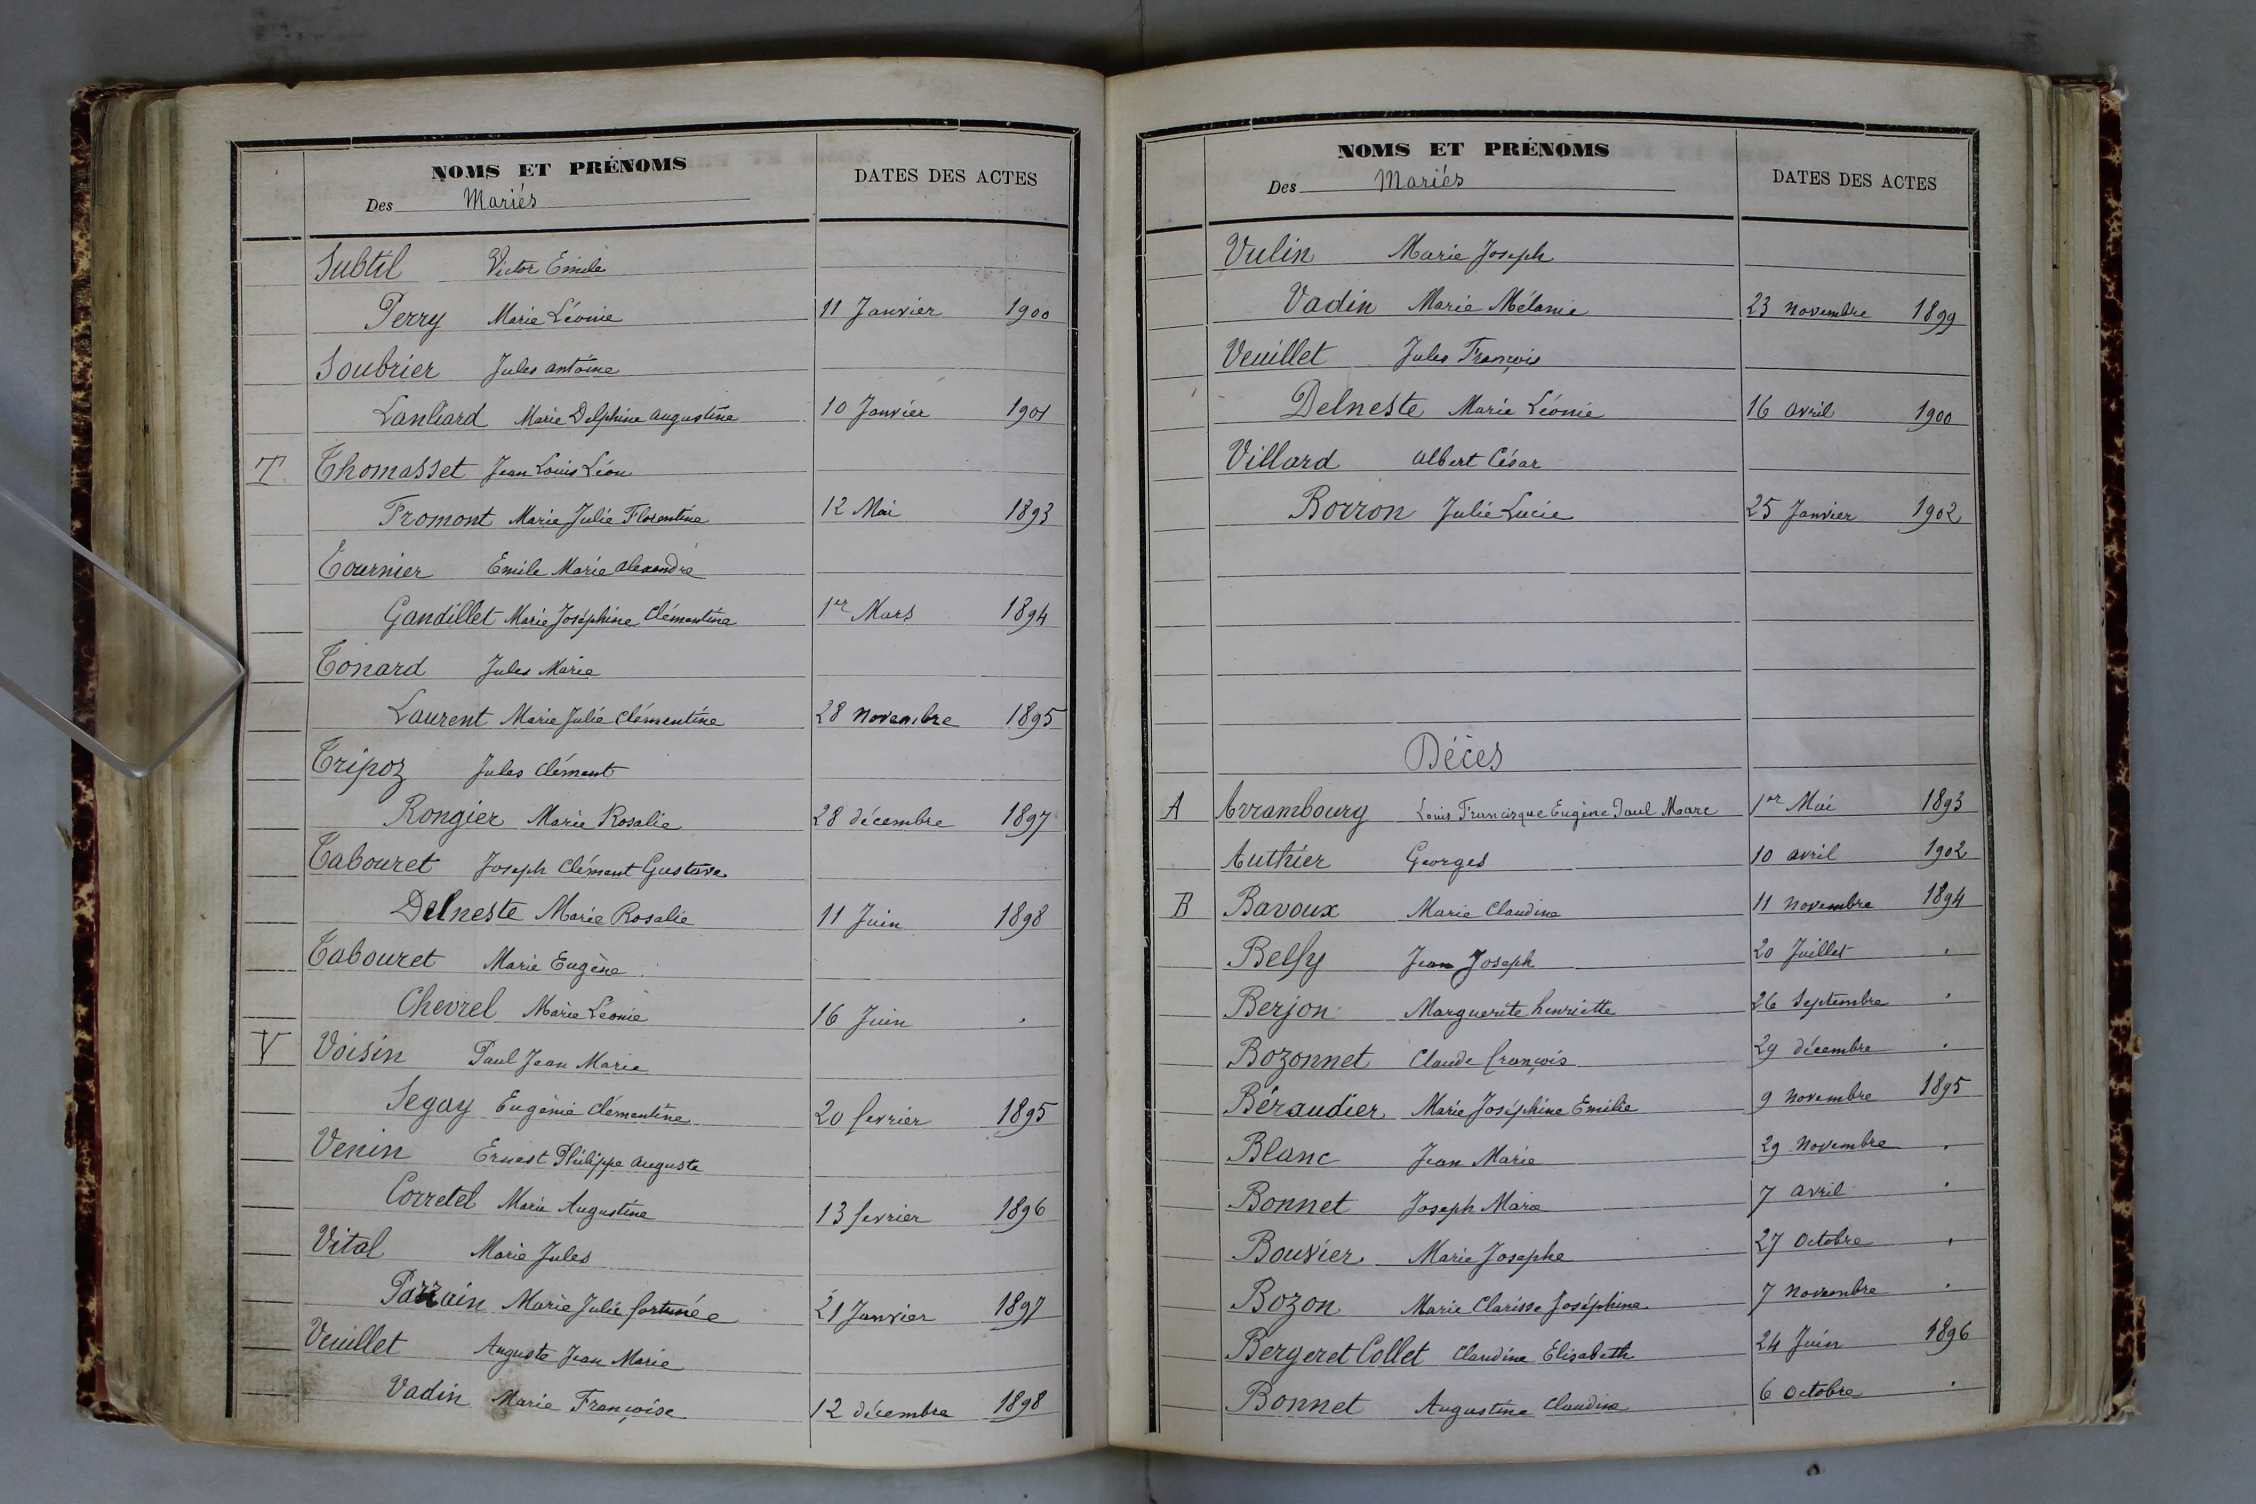 NOMS ET PRÉNOMS
Des Mariés
DATES DES ACTES
Subtil Victor Emile
Perry Marie Léonie 11 Janvier 1900
Soubrier Jules Antoine
Lanliard Marie Delphine Augustine 10 Janvier 1901
T Thomasset Jean Louis Léon
Fromont Marie Julie Florentine 12 Mai 1893
Tournier Emile Marie Alexandre
Gandillet Marie Joséphine Clémentine 1er Mars 1894
Tonard Jules Marie
Laurent Marie Julie Clémentine 28 Novembre 1895
Tripoz Jules Clément
Rongier Marie Rosalie 28 décembre 1897
Tabouret Joseph Clément Gustave
Delneste Marie Rosalie 11 Juin 1898
Tabouret Marie Eugène
Chevrel Marie Léonie 16 Juin "
V Voisin Paul Jean Marie
Segay Eugénie Clémentine 20 fevrier 1895
Venin Ernest Philippe Auguste
Corretel Marie Augustine 13 fevrier 1896
Vital Marie Jules
Parrain Marie Julie fortunée 21 Janvier 1897
Veuillet Auguste Jean Marie
Vadin Marie Françoise 12 décembre 1898
NOMS ET PRÉNOMS
Des Mariés
DATES DES ACTES
Vulin Marie Joseph
Vadin Marie Mélanie 23 Novembre 1899
Veuillet Jules François
Delneste Marie Léonie 16 avril 1900
Villard Albert César
Borron Julie Lucie 25 Janvier 1902
Décès
A Arrambourg Louis Francisque Eugène Paul Marc 1er Mai 1893
Authier Georges 10 avril 1902
B Bavoux Marie Claudine 11 Novembre 1894
Belly Jean Joseph 20 Juillet "
Berjon Marguerite henriette 26 Septembre "
Bozonnet Claude françois 29 décembre "
Béraudier Marie Joséphine Emilie 9 Novembre 1895
Blanc Jean Marie 29 Novembre "
Bonnet Joseph Marie 7 avril "
Bouvier Marie Josephe 27 Octobre "
Bozon Marie Clarisse Joséphine 7 Novembre "
Bergeret Collet Claudine Elisabeth 24 Juin 1896
Bonnet Augustine Claudine 6 Octobre "